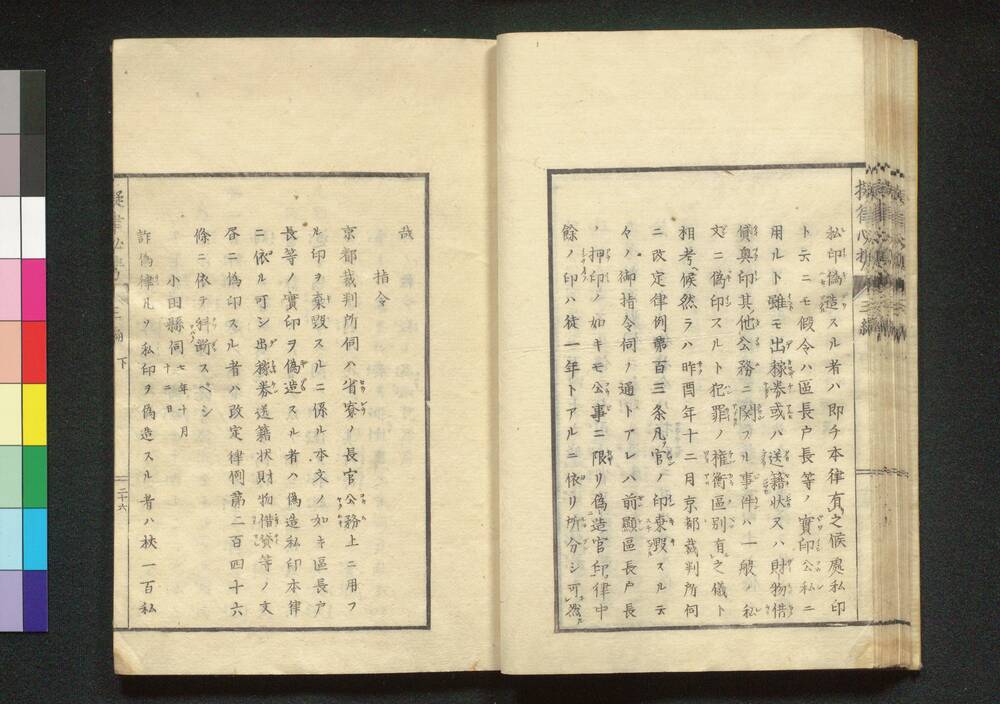 私印偽造スル者ハ即チ本律有之候處私印
ト云ニモ假令ハ區長戸長等ノ實印公私ニ
用ルト雖モ出稼券或ハ送籍状又ハ財物借
貸奥印其他公務ニ関スル事件ハ一般ノ私
文ニ偽印スルト犯罪ノ權衡區別有之儀ト
相考候然ラハ昨酉年十二月京都裁判所伺
ニ改定律例第百三条凡官ノ印棄毀スル云
々ノ御指令伺ノ通トアレハ前顕區長戸長
ノ押印ノ如キモ公事ニ限リ偽造官印律中
餘ノ印ハ徒一年トアルニ依リ所分シ可然
哉
指令
京都裁判所伺ハ省寮ノ長官公務上ニ用フ
ル印ヲ棄毀スルニ係ル本文ノ如キ區長戸
長等ノ實印ヲ偽造スル者ハ偽造私印本律
ニ依ル可シ出稼券送籍状財物借貸等ノ文
書ニ偽印スル者ハ改定律例第二百四十六
條ニ依テ科断スベシ
小田縣伺 七年十月十二日
詐偽律凡ソ私印ヲ偽造スル者ハ杖一百私
三編 下
二十六